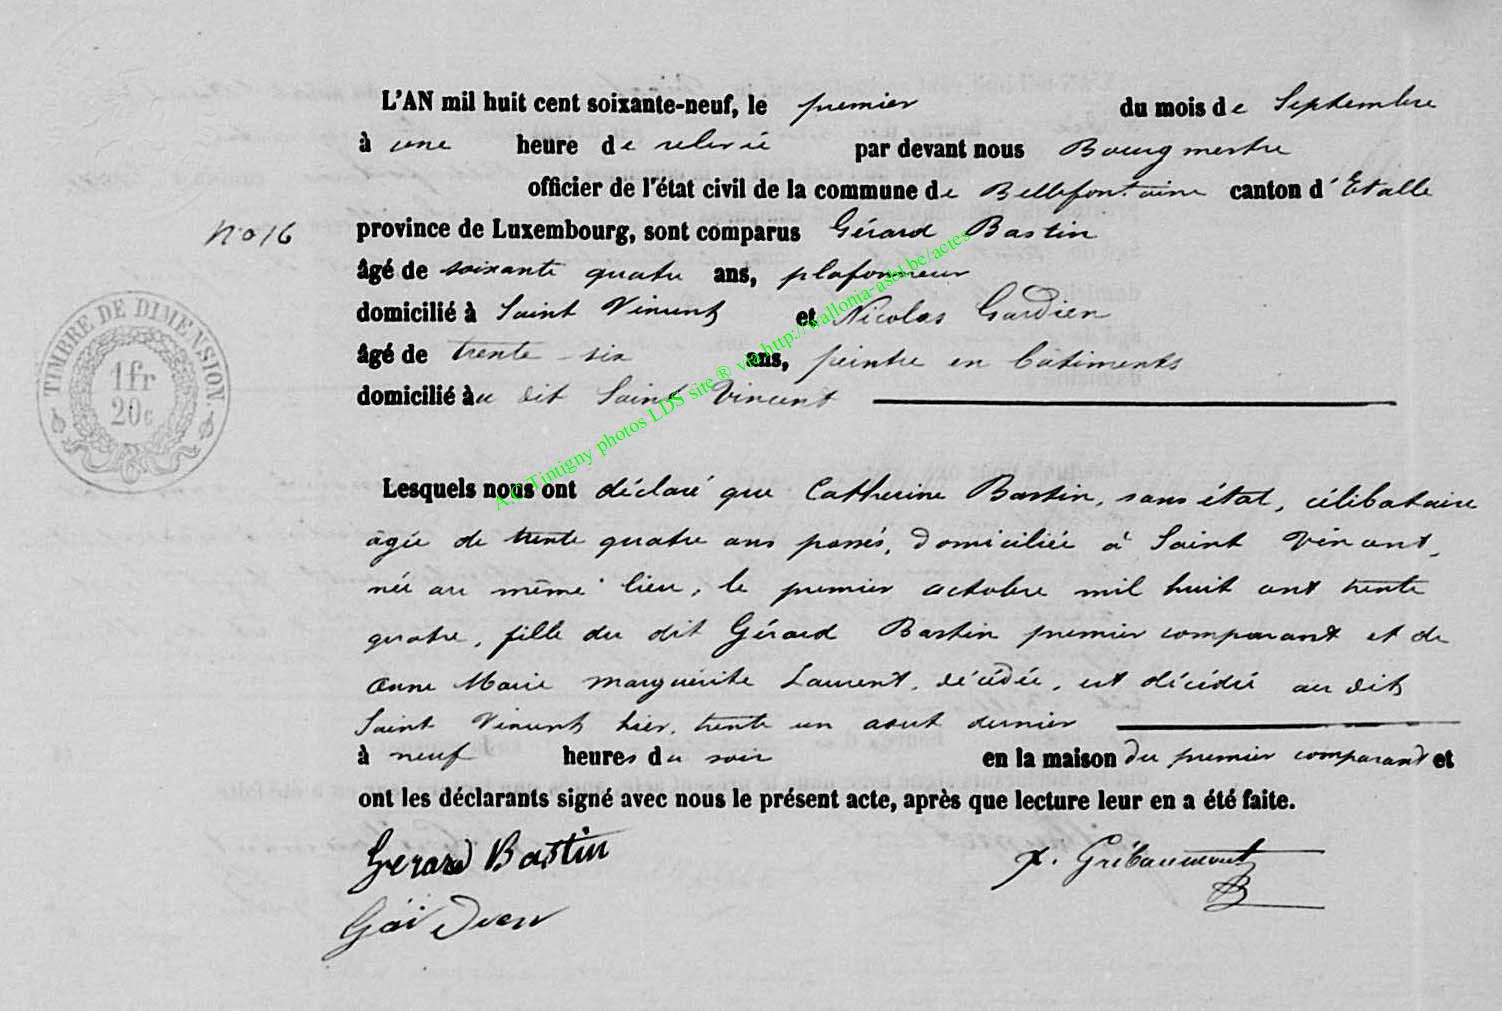 L'AN mil huit cent soixante-neuf, le premier du mois de Septembre
à une heure de relevée par devant nous Bourgmestre
officier de l'état civil de la commune de Bellefontaine canton d'Etalle
No 16
province de Luxembourg, sont comparus Gérard Bastin
âgé de soixante quatre ans, plafonneur
domicilié à Saint Vincent et Nicolas Gardien
âgé de trente-six ans, peintre en bâtiments
domicilié au dit Saint Vincent
TIMBRE DE DIMENSION
1fr
20c
A.C. Tintigny photos LDS site® via http://wallonia-asbl.be/actes
Lesquels nous ont déclaré que Catherine Bastin, sans état, célibataire
âgée de trente quatre ans passés, domiciliée à Saint Vincent,
née au même lieu, le premier octobre mil huit cent trente
quatre, fille du dit Gérard Bastin premier comparant et de
Anne Marie Marguerite Laurent, décédée, est décédée au dit
Saint Vincent hier, trente un août dernier
à neuf heures du soir en la maison du premier comparant et
ont les déclarants signé avec nous le présent acte, après que lecture leur en a été faite.
Gerard Bastin
Gribaumont
Gardien